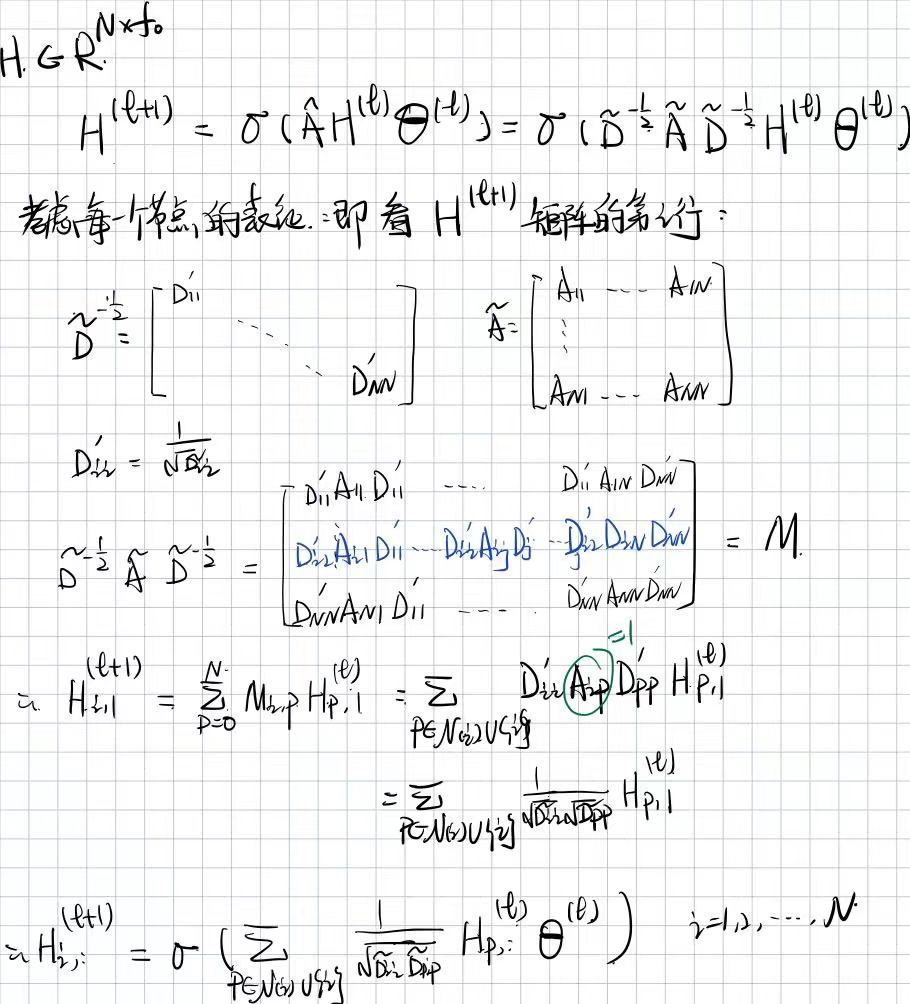 H ∈ R^{N×f₀}
H^{(ℓ+1)} = σ(Â H^{(ℓ)} Θ^{(ℓ)}) = σ(D̃^{-1/2} Ã D̃^{-1/2} H^{(ℓ)} Θ^{(ℓ)})
考虑每一个节点的表征:即看 H^{(ℓ+1)} 矩阵的第i行:
D̃^{-1/2} = [D'₁₁ ⋱ D'_{NN}] Ã = [A₁₁ ---- A_{1N} ⋮ A_{N1} ---- A_{NN}]
D'_{ii} = 1/√D̃_{ii}
D̃^{-1/2} Ã D̃^{-1/2} = [D'₁₁A₁₁D'₁₁ ---- D'₁₁A_{1N}D'_{NN}
D'_{ii}A_{i1}D'₁₁ ---- D'_{ii}A_{ij}D'_j ---- D'_{ii}D_{iN}D'_{NN}
D'_{NN}A_{N1}D'₁₁ ---- D'_{NN}A_{NN}D'_{NN}] = M.
∴ H_{i,1}^{(ℓ+1)} = Σ_{p=0}^{N} M_{i,p} H_{p,1}^{(ℓ)} = Σ_{p∈N(i)∪{i}} D'_{ii} A_{ip} D'_{pp} H_{p,1}^{(ℓ)}
=1
= Σ_{p∈N(i)∪{i}} 1/(√D̃_{ii}√D̃_{pp}) H_{p,1}^{(ℓ)}
∴ H_{i,:}^{(ℓ+1)} = σ(Σ_{p∈N(i)∪{i}} 1/√(D̃_{ii} D̃_{pp}) H_{p,:}^{(ℓ)} Θ^{(ℓ)}) i=1,2,⋯,N.